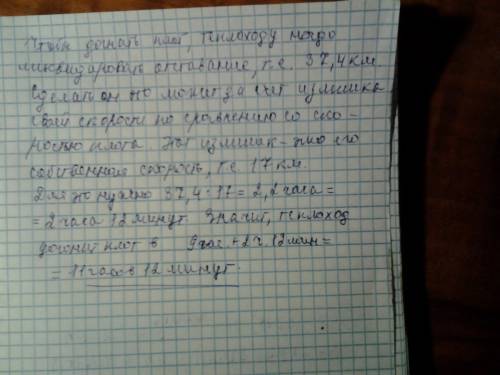 Чтобы догнать плот, теплоходу надо
ликвидировать отставание, т.е. 37,4 км.
Сделать он это может за счет излишка
своей скорости по сравнению со ско-
ростью плота. Этот излишек - это его
собственная скорость, т.е. 17 км.
Для это нужно 37,4 : 17 = 2,2 часа =
= 2 часа 12 минут. Значит, теплоход
догонит плот в 9 час. + 2 ч. 12 мин =
= 11 часов 12 минут.